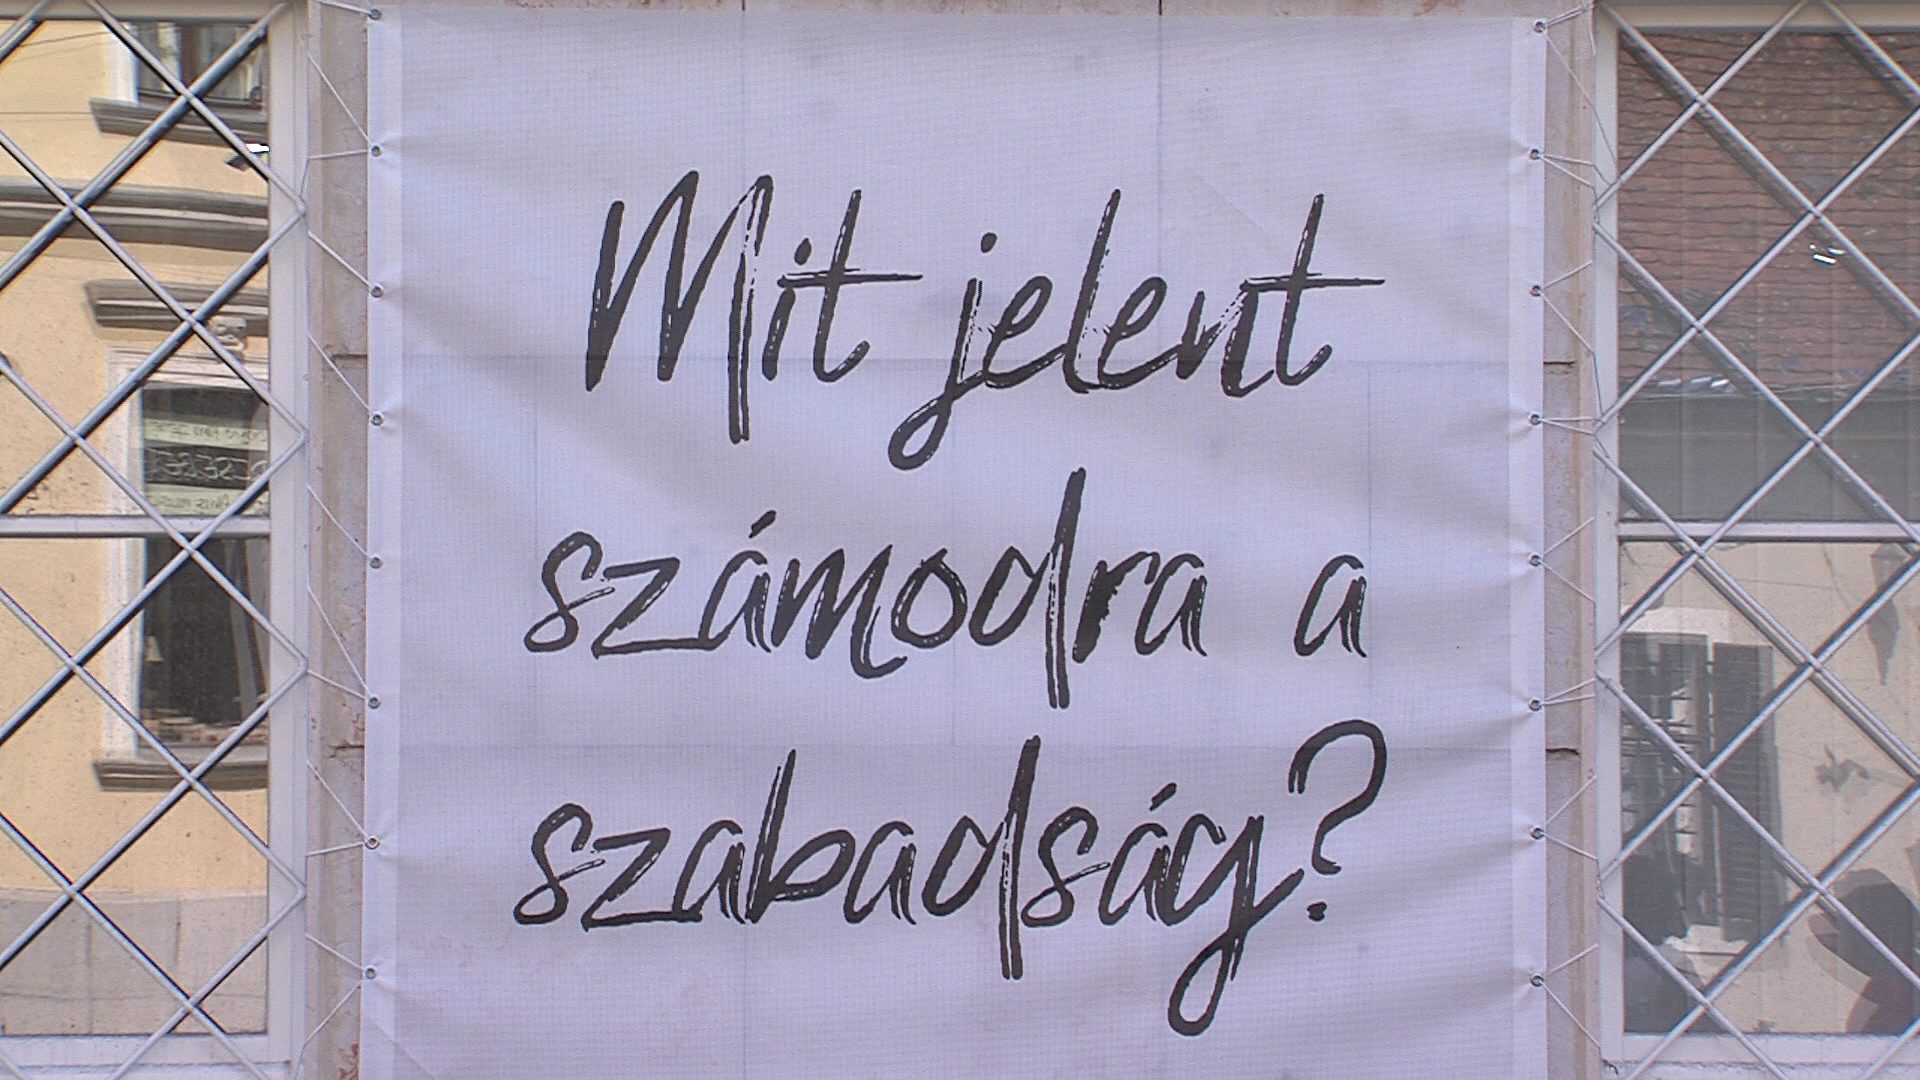 Mit jelent
számodra a
szabadság?